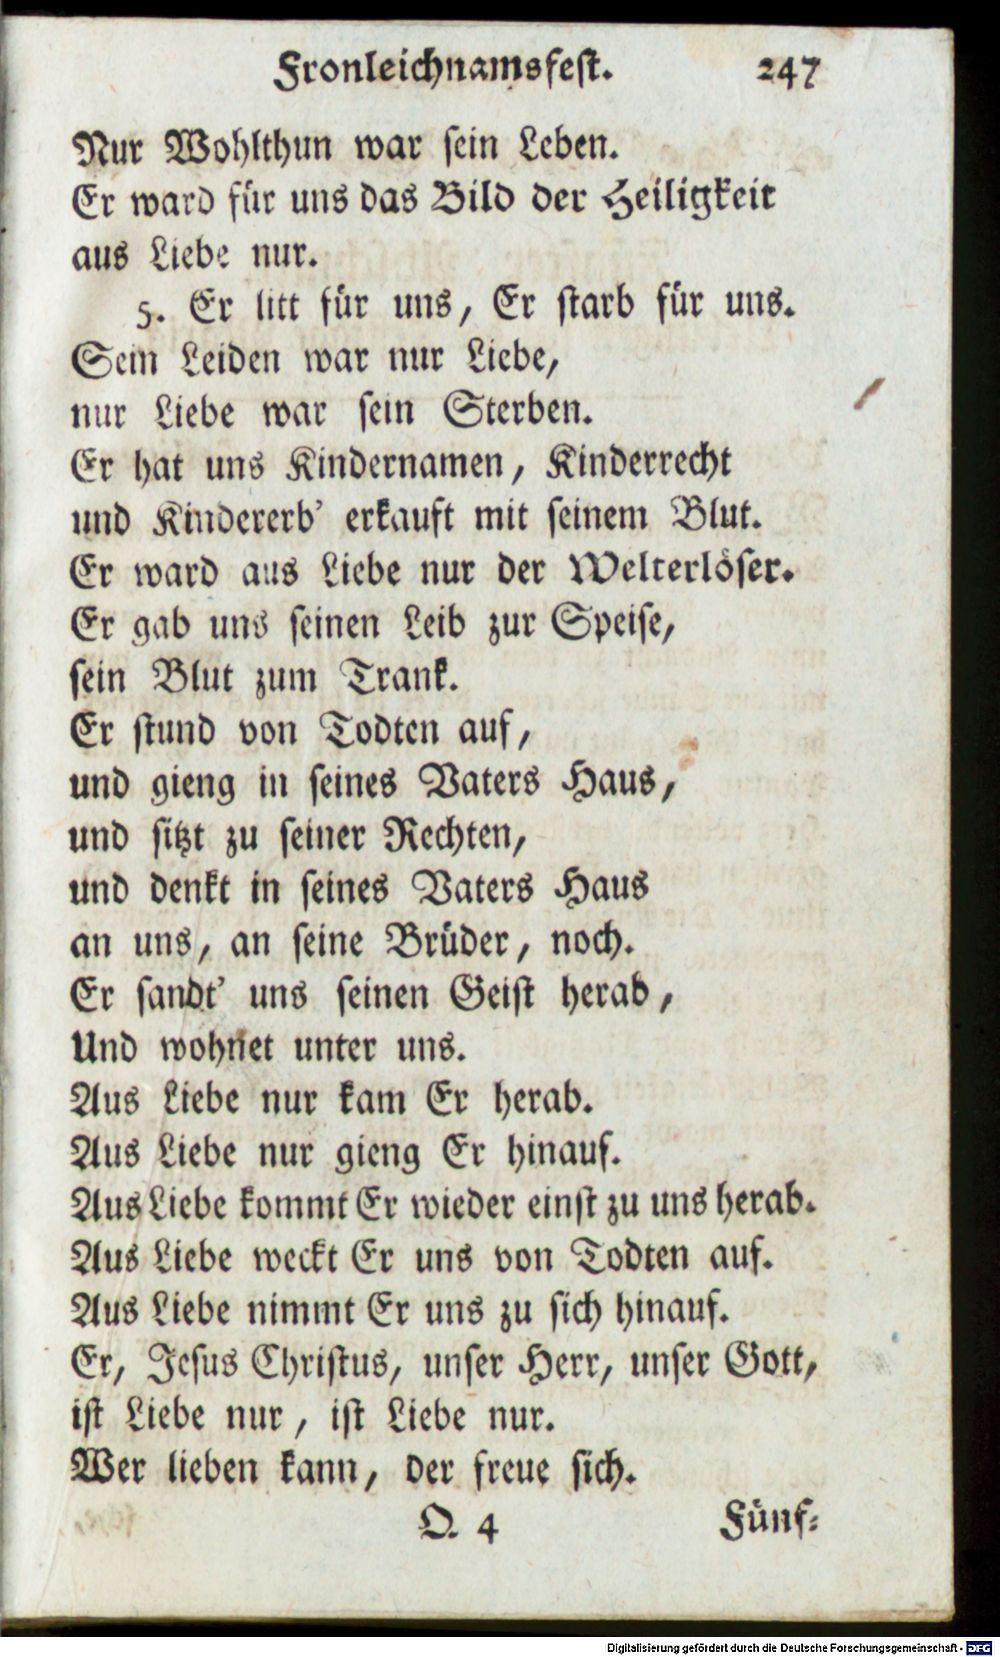 Fronleichnamsfest. 247
Nur Wohlthun war sein Leben.
Er ward für uns das Bild der Heiligkeit
aus Liebe nur.
5. Er litt für uns, Er starb für uns.
Sein Leiden war nur Liebe,
nur Liebe war sein Sterben.
Er hat uns Kindernamen, Kinderrecht
und Kindererb' erkauft mit seinem Blut.
Er ward aus Liebe nur der Welterlöser.
Er gab uns seinen Leib zur Speise,
sein Blut zum Trank.
Er stund von Todten auf,
und gieng in seines Vaters Haus,
und sitzt zu seiner Rechten,
und denkt in seines Vaters Haus
an uns, an seine Brüder, noch.
Er sandt' uns seinen Geist herab,
Und wohnet unter uns.
Aus Liebe nur kam Er herab.
Aus Liebe nur gieng Er hinauf.
Aus Liebe kommt Er wieder einst zu uns herab.
Aus Liebe weckt Er uns von Todten auf.
Aus Liebe nimmt Er uns zu sich hinauf.
Er, Jesus Christus, unser Herr, unser Gott,
ist Liebe nur, ist Liebe nur.
Wer lieben kann, der freue sich.
Q. 4 Fünf-
Digitalisierung gefördert durch die Deutsche Forschungsgemeinschaft - DFG